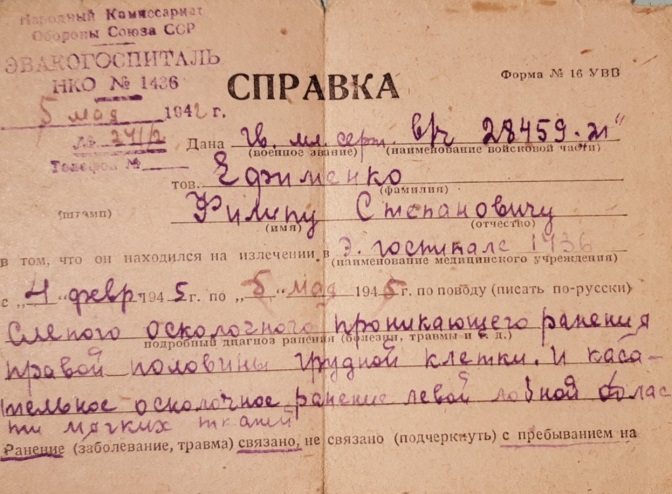 Народный Комиссариат
Обороны Союза ССР
ЭВАКОГОСПИТАЛЬ
НКО № 1436
5 мая 194 г.
№ 241/2
Телефон №
СПРАВКА
Форма № 16 УВВ
Дана Гв. мл. серж. в/ч 28459
(военное звание) (наименование войсковой части)
тов. Ефименко
(фамилия)
(штамп) Филипу Степановичу
(имя) (отчество)
в том, что он находился на излечении в Э. госпитале 1436
(наименование медицинского учреждения)
с „4" февр 1945 г. по „5" мая 1945 г. по поводу (писать по-русски)
Слепого осколочного проникающего ранения
подробный диагноз ранения (болезни, травмы и т. д.)
правой половины грудной клетки. И каса-
тельное осколочное ранение левой лобной облас
ти мягких тканей
Ранение (заболевание, травма) связано, не связано (подчеркнуть) с пребыванием на